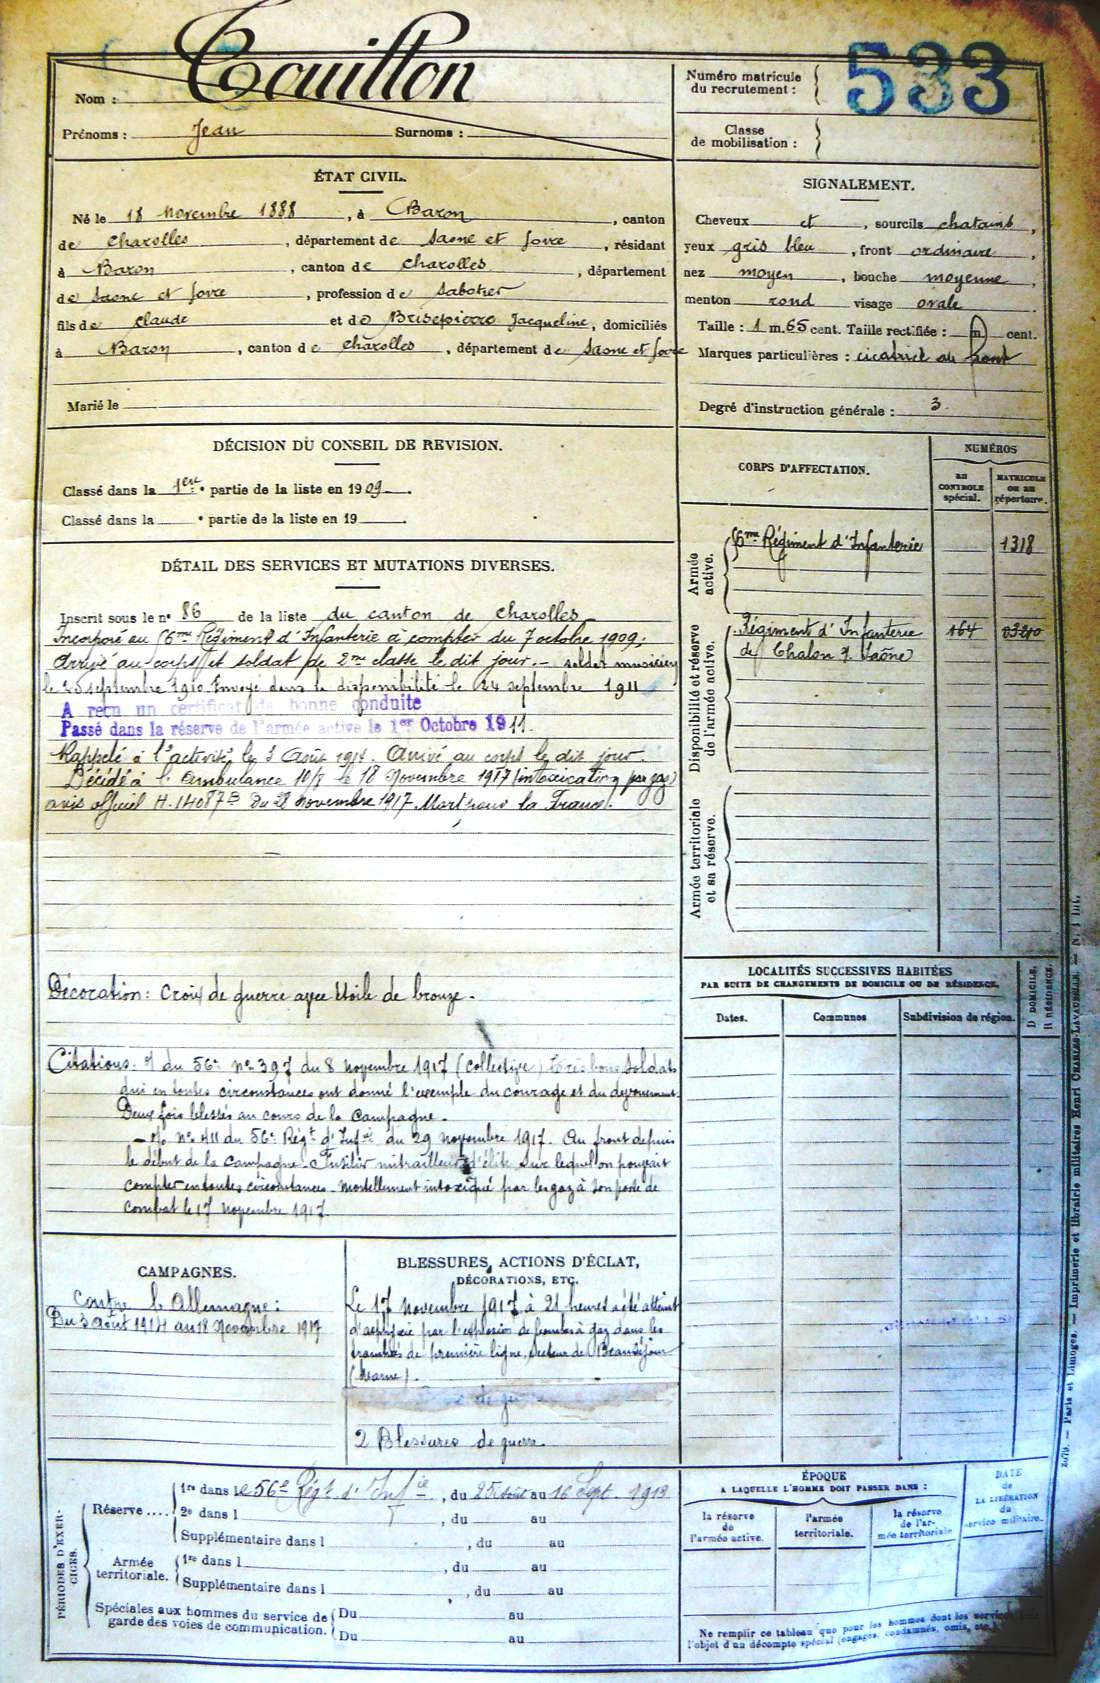 Nom : Touillon
Prénoms : Jean Surnoms :
Numéro matricule du recrutement : 533
Classe de mobilisation :
ÉTAT CIVIL.
Né le 18 novembre 1888, à Baron, canton
de Charolles, département de Saone et Loire, résidant
à Baron, canton de Charolles, département
de Saone et Loire, profession de Sabotier
fils de Claude et de Brisepierre Jacqueline, domiciliés
à Baron, canton de Charolles, département de Saone et Loire
Marié le
SIGNALEMENT.
Cheveux et, sourcils chatains,
yeux gris bleu, front ordinaire,
nez moyen, bouche moyenne,
menton rond visage ovale
Taille : 1 m. 65 cent. Taille rectifiée : m. cent.
Marques particulières : cicatrice au front
Degré d'instruction générale : 3.
DÉCISION DU CONSEIL DE REVISION.
Classé dans la 1ere partie de la liste en 1909.
Classé dans la e partie de la liste en 19 .
CORPS D'AFFECTATION.
NUMÉROS
AU CONTROLE spécial.
MATRICULE OU AU répertoire.
Armée active.
56me Régiment d'Infanterie 1318
Disponibilité et réserve de l'armée active.
Régiment d'Infanterie 164
de Chalon s/ Saône
Armée territoriale et sa réserve.
DÉTAIL DES SERVICES ET MUTATIONS DIVERSES.
Inscrit sous le n° 86 de la liste du canton de Charolles
Incorporé au 56me Régiment d'Infanterie à compter du 7 octobre 1909.
Arrivé au corps et soldat de 2me classe le dit jour. - soldat musicien
le 25 septembre 1910. Envoyé dans la disponibilité le 24 septembre 1911
A reçu un certificat de bonne conduite
Passé dans la réserve de l'armée active le 1er Octobre 1911.
Rappelé à l'activité le 3 Août 1914. Arrivé au corps le dit jour.
Décédé à l'ambulance 10/8 le 18 Novembre 1917 (intoxication par gaz)
avis officiel du 28 novembre 1917. Mort pour la France.
Décoration : Croix de guerre avec étoile de bronze.
Citations. du 56e n° 397 du 8 novembre 1917 (collective) Très bons soldats
qui en toutes circonstances ont donné l'exemple du courage et du dévouement.
Deux fois blessés au cours de la campagne.
n° 411 du 56e Régt d'Infie du 29 novembre 1917. Au front depuis
le début de la campagne. Fusilier mitrailleur d'élite sur lequel on pouvait
compter en toutes circonstances. Mortellement intoxiqué par les gaz à son poste de
combat le 17 novembre 1917.
LOCALITÉS SUCCESSIVES HABITÉES
PAR SUITE DE CHANGEMENTS DE DOMICILE OU DE RÉSIDENCE.
Dates. Communes Subdivision de région. D DOMICILE. R RÉSIDENCE.
CAMPAGNES.
Contre l'Allemagne :
Du 3 Août 1914 au 18 Novembre 1917
BLESSURES, ACTIONS D'ÉCLAT,
DÉCORATIONS, ETC.
Le 17 novembre 1917 à 21 heures a été atteint
d'asphyxie par l'explosion de bombes à gaz dans les
tranchées de première ligne, secteur de Beauséjour
(Marne).
2 Blessures de guerre
PÉRIODES D'EXERCICES.
Réserve .... 1re dans le 56e Régt d'Infie, du 25 Août au 16 Sept. 1913
2e dans l , du au
Supplémentaire dans l , du au
Armée territoriale. 1re dans l , du au
Supplémentaire dans l , du au
Spéciales aux hommes du service de garde des voies de communication. Du au
Du au
ÉPOQUE
A LAQUELLE L'HOMME DOIT PASSER DANS :
la réserve de l'armée active.
l'armée territoriale.
la réserve de l'armée territoriale
DATE de LA LIBÉRATION du service militaire.
Ne remplir ce tableau que pour les hommes dont les services
l'objet d'un décompte spécial (engagés, condamnés, omis, etc.)
Paris et Limoges. — Imprimerie et librairie militaires Henri CHARLES-LAVAUZELLE.